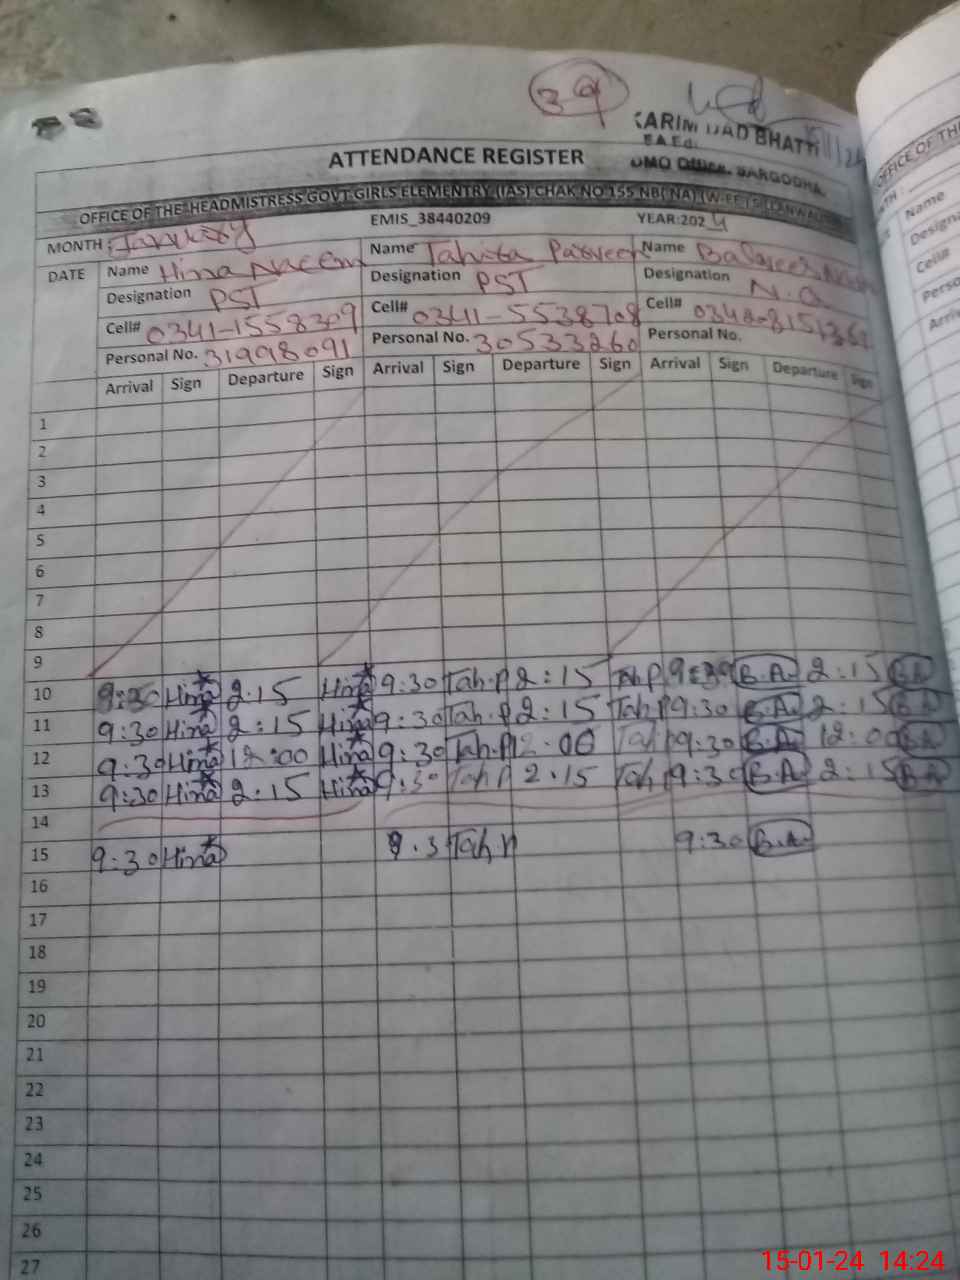 39
KARIM DAD BHATTI
DMO Office, SARGODHA.
ATTENDANCE REGISTER
OFFICE OF THE HEADMISTRESS GOVT GIRLS ELEMENTRY (IAS) CHAK NO 155 NB( NA)
EMIS_38440209
YEAR:2024
MONTH: January
DATE Name Hina Naeem Name Tahira Parveen Name
Designation PST Designation PST Designation N.Q
Cell# 0341-1558309 Cell# 0341-5538708 Cell#
Personal No. 31998091 Personal No. 30533260 Personal No.
Arrival Sign Departure Sign Arrival Sign Departure Sign Arrival Sign Departure Sign
1
2
3
4
5
6
7
8
9
10 9:30 Hina 2.15 Hina 9:30 Tah.P 2:15 Tah P 9:30 B.A. 2:15 B.A
11 9:30 Hina 2:15 Hina 9:30 Tah.P 2:15 Tah.P 9:30 B.A. 2:15 B.A
12 9:30 Hina 12:00 Hina 9:30 Tah.P 12.00 Tah P 9:30 B.A. 12:00 B.A
13 9:30 Hina 2.15 Hina 9:30 Tah P 2.15 Tah P 9:30 B.A. 2:15 B.A
14
15 9:30 Hina 9.3 Tah 9:30 B.A.
16
17
18
19
20
21
22
23
24
25
26
27
OFFICE OF TH
Name
Cell#
15-01-24 14:24